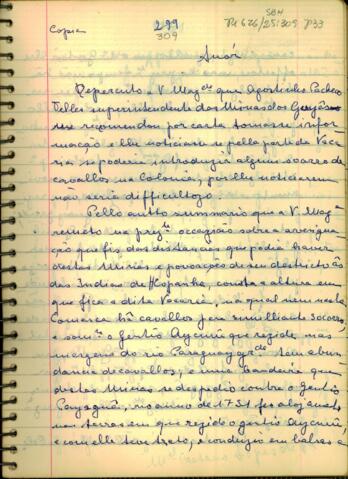 Copia
299
309
SBN
P1 626/25:309 P33
Snór
Repercuto a V. Magde que Agostinho Pacheco
Telles superintendente das Minas dos Goyáses
me recomendou por carta tomasse infor-
mação e lhe noticiasse se pella parte da Vaca-
ria se poderia introduzir algum socorro de
cavallos na Colonia, por lhe noticiarem
não seria difficultozo.
Pello auto summario que a V. Magde
remeto na prezte occazião sobre a averigua-
ção que fis das distancias que podia haver
destas Minas e povoações de seu destricto ás
das Indias de Hespanha, consta a altura em
que fica a dita Vacaria, na qual nem nesta
Comarca há cavallos para similhante socorro,
e somte o Gentio Aycurú que rezide nas
margens do rio Paraguay gde tem abun-
dancia de cavallos, e uma Bandeira que
destas Minas se despedio contra o Gentio
Payaguá, no anno de 1731 foi alojar-se
nas terras em que rezide o gentio Aycurú,
e com elle teve trato, e conduzio em balsas a